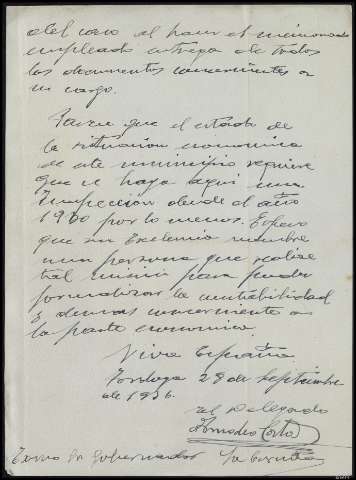 del caso al hacer el mencionado
empleado entrega de todos
los documentos concernientes a
su cargo.
Parece que el estado de
la situacion economica
de este municipio requiere
que se haga aqui una
Inspección desde el año
1930 por lo menos. Espero
que su Excelencia nombre
una persona que realice
tal mision para poder
formalizar la contabilidad
y demas concerniente a
la parte economica.
Viva España
29 de septiembre
de 1936.
el Delegado
Amadeo
Exmo Sr Gobernador La Coruña